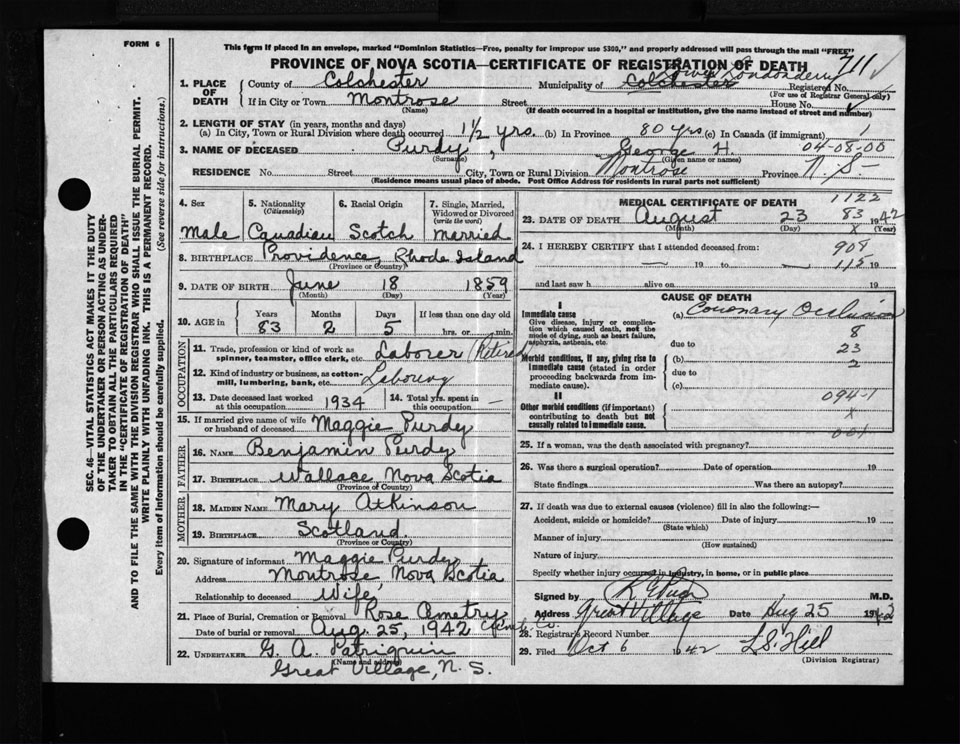 FORM 6
This form if placed in an envelope, marked "Dominion Statistics—Free, penalty for improper use $300," and properly addressed will pass through the mail "FREE"
PROVINCE OF NOVA SCOTIA—CERTIFICATE OF REGISTRATION OF DEATH
711
1. PLACE OF DEATH
County of Colchester
Municipality of Colchester Lower Londonderry
Registered No.
(For use of Registrar General only)
If in City or Town Montrose Street House No.
(Name) (If death occurred in a hospital or institution, give the name instead of street and number)
2. LENGTH OF STAY (in years, months and days)
(a) In City, Town or Rural Division where death occurred 1½ yrs. (b) In Province 80 yrs (c) In Canada (if immigrant) 1
04-08-00
3. NAME OF DECEASED Purdy, George H.
(Surname) (Given name or names)
RESIDENCE No. Street City, Town or Rural Division Montrose Province N.S.
(Residence means usual place of abode. Post Office Address for residents in rural parts not sufficient)
4. Sex Male
5. Nationality (Citizenship) Canadian
6. Racial Origin Scotch
7. Single, Married, Widowed or Divorced (write the word) married
8. BIRTHPLACE Providence, Rhode Island
(Province or Country)
9. DATE OF BIRTH June 18 1859
(Month) (Day) (Year)
10. AGE in Years 83 Months 2 Days 5 If less than one day old hrs. or min.
OCCUPATION
11. Trade, profession or kind of work as spinner, teamster, office clerk, etc. Laborer (Retired
12. Kind of industry or business, as cotton-mill, lumbering, bank, etc.
13. Date deceased last worked at this occupation 1934
14. Total yrs. spent in this occupation —
15. If married give name of wife or husband of deceased Maggie Purdy
FATHER
16. NAME Benjamin Purdy
17. BIRTHPLACE Wallace Nova Scotia
(Province or Country)
MOTHER
18. MAIDEN NAME Mary Atkinson
19. BIRTHPLACE Scotland
(Province or Country)
20. Signature of informant Maggie Purdy
Address Montrose, Nova Scotia
Relationship to deceased Wife
21. Place of Burial, Cremation or Removal Rose Cemetry
Date of burial or removal Aug. 25, 1942
22. UNDERTAKER G. A. Patriquin
(Name and address)
Great Village, N. S.
MEDICAL CERTIFICATE OF DEATH
1122
83
23. DATE OF DEATH August 23 1942
(Month) (Day) x (Year)
24. I HEREBY CERTIFY that I attended deceased from:
908
— 19 to — 19
115
and last saw h alive on 19
CAUSE OF DEATH
I
Immediate cause
Give disease, injury or complication which caused death, not the mode of dying, such as heart failure, asphyxia, asthenia, etc.
(a) Coronary Occlusion
8
due to
23
Morbid conditions, if any, giving rise to immediate cause (stated in order proceeding backwards from immediate cause).
(b) 2
due to
(c)
094-1
II
Other morbid conditions (if important) contributing to death but not causally related to immediate cause.
x
001
25. If a woman, was the death associated with pregnancy?
26. Was there a surgical operation? Date of operation 19
State findings Was there an autopsy?
27. If death was due to external causes (violence) fill in also the following:—
Accident, suicide or homicide? Date of injury 19
(State which)
Manner of injury
(How sustained)
Nature of injury
Specify whether injury occurred in industry, in home, or in public place
Signed by M.D.
Address Great Village Date Aug 25 1942
28. Registrar's Record Number
29. Filed Oct 6 1942 L.S. Hill
(Division Registrar)
SEC. 46—VITAL STATISTICS ACT MAKES IT THE DUTY
OF THE UNDERTAKER OR PERSON ACTING AS UNDER-
TAKER TO OBTAIN ALL THE PARTICULARS REQUIRED
IN THE "CERTIFICATE OF REGISTRATION OF DEATH"
AND TO FILE THE SAME WITH THE DIVISION REGISTRAR WHO SHALL ISSUE THE BURIAL PERMIT.
WRITE PLAINLY WITH UNFADING INK. THIS IS A PERMANENT RECORD.
Every item of information should be carefully supplied. (See reverse side for instructions.)